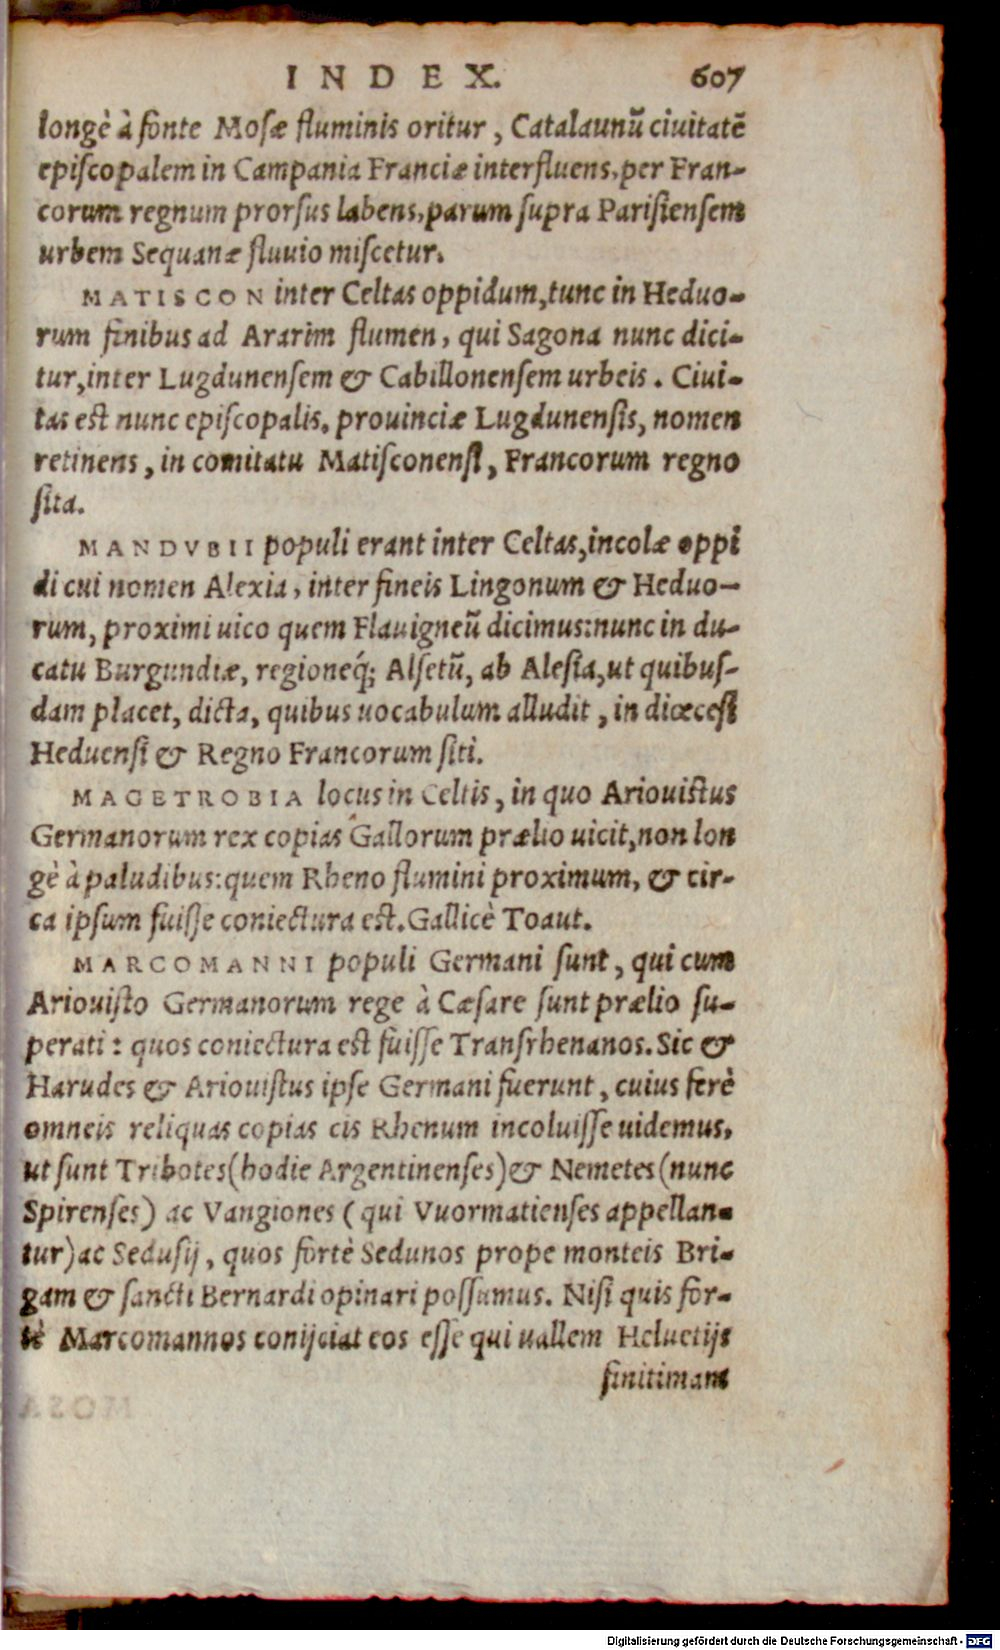 INDEX. 607
longè à fonte Mosæ fluminis oritur, Catalaunũ ciuitatẽ
episcopalem in Campania Franciæ interfluens, per Fran-
corum regnum prorsus labens, parum supra Parisiensem
urbem Sequanæ fluuio miscetur.
MATISCON inter Celtas oppidum, tunc in Heduo-
rum finibus ad Ararim flumen, qui Sagona nunc dici-
tur, inter Lugdunensem & Cabillonensem urbeis. Ciui-
tas est nunc episcopalis, prouinciæ Lugdunensis, nomen
retinens, in comitatu Matisconensi, Francorum regno
sita.
MANDVBII populi erant inter Celtas, incolæ oppi
di cui nomen Alexia, inter fineis Lingonum & Heduo-
rum, proximi uico quem Flauigneũ dicimus: nunc in du-
catu Burgundiæ, regioneq́; Alsetũ, ab Alesia, ut quibus-
dam placet, dicta, quibus uocabulum alludit, in diœcesi
Heduensi & Regno Francorum siti.
MAGETROBIA locus in Celtis, in quo Ariouistus
Germanorum rex copias Gallorum prælio uicit, non lon
gè à paludibus: quem Rheno flumini proximum, & cir-
ca ipsum fuisse coniectura est. Gallicè Toaut.
MARCOMANNI populi Germani sunt, qui cum
Ariouisto Germanorum rege à Cæsare sunt prælio su-
perati: quos coniectura est fuisse Transrhenanos. Sic &
Harudes & Ariouistus ipse Germani fuerunt, cuius ferè
omneis reliquas copias cis Rhenum incoluisse uidemus,
ut sunt Tribotes (hodie Argentinenses) & Nemetes (nunc
Spirenses) ac Vangiones (qui Vuormatienses appellan-
tur) ac Sedusij, quos fortè Sedunos prope monteis Bri-
gam & sancti Bernardi opinari possumus. Nisi quis for-
tè Marcomannos conijciat eos esse qui uallem Heluetijs
finitimam
Digitalisierung gefördert durch die Deutsche Forschungsgemeinschaft - DFG